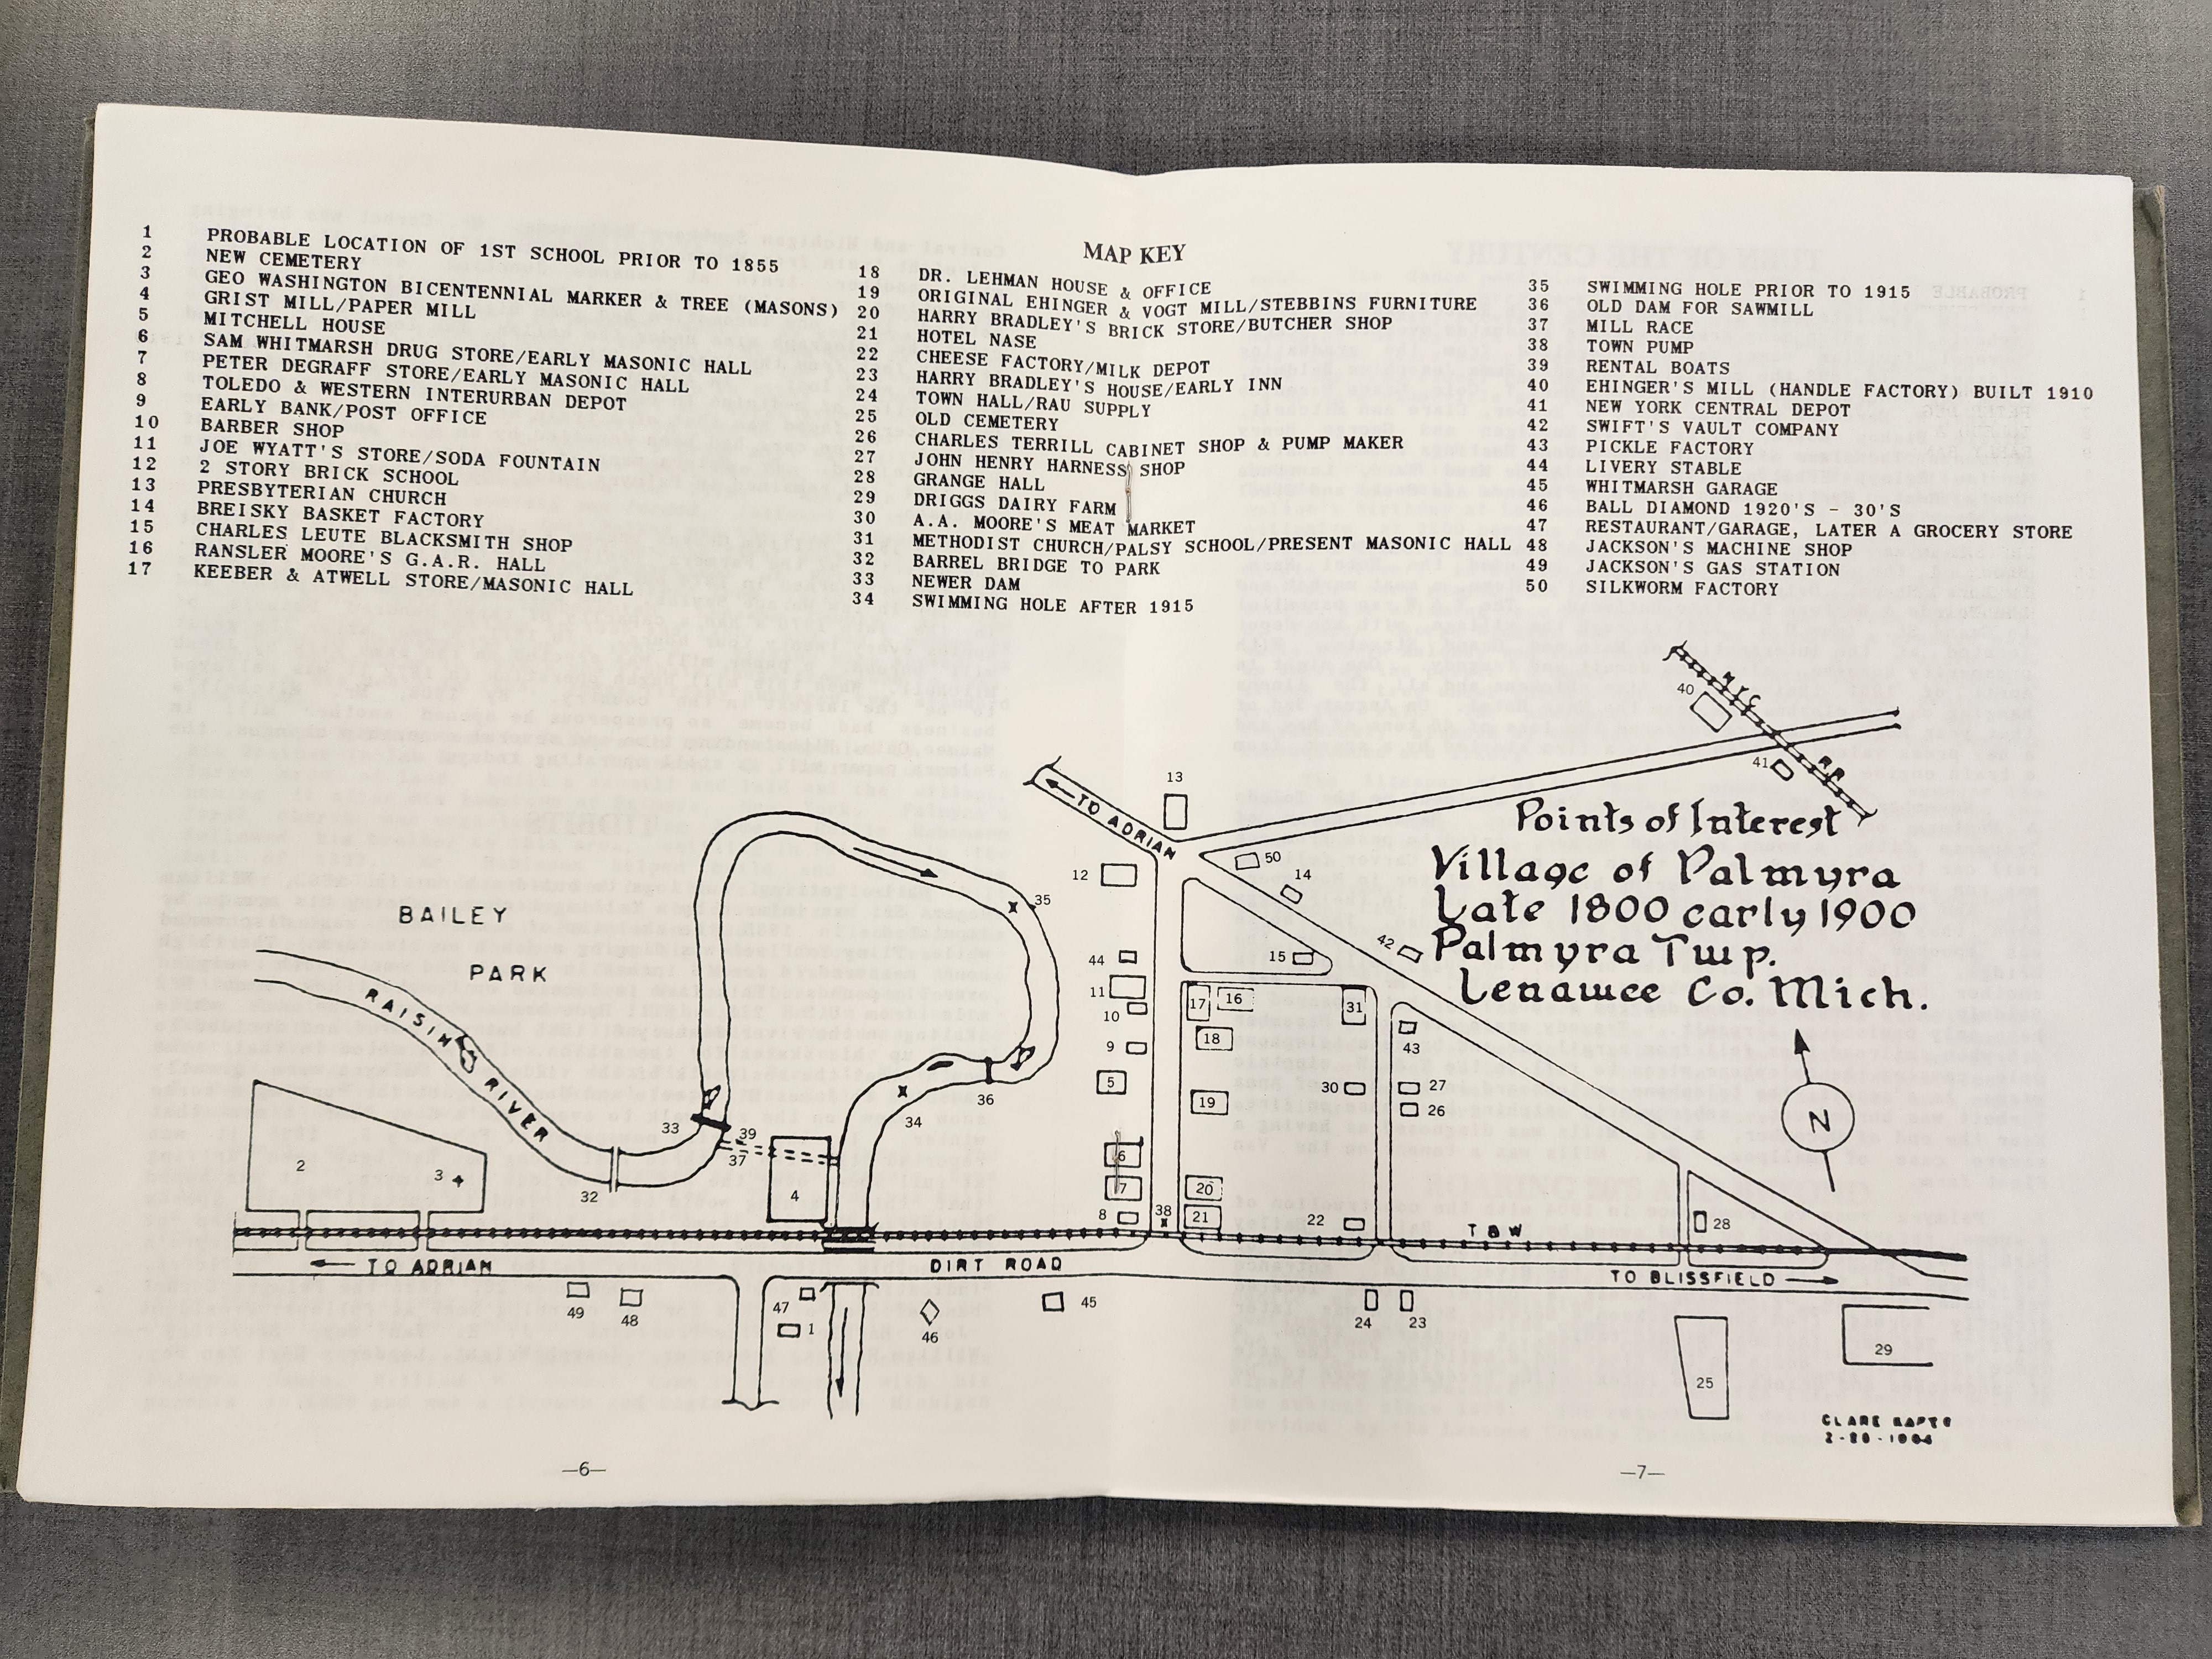 MAP KEY
1 PROBABLE LOCATION OF 1ST SCHOOL PRIOR TO 1855
2 NEW CEMETERY
3 GEO WASHINGTON BICENTENNIAL MARKER & TREE (MASONS)
4 GRIST MILL/PAPER MILL
5 MITCHELL HOUSE
6 SAM WHITMARSH DRUG STORE/EARLY MASONIC HALL
7 PETER DEGRAFF STORE/EARLY MASONIC HALL
8 TOLEDO & WESTERN INTERURBAN DEPOT
9 EARLY BANK/POST OFFICE
10 BARBER SHOP
11 JOE WYATT'S STORE/SODA FOUNTAIN
12 2 STORY BRICK SCHOOL
13 PRESBYTERIAN CHURCH
14 BREISKY BASKET FACTORY
15 CHARLES LEUTE BLACKSMITH SHOP
16 RANSLER MOORE'S G.A.R. HALL
17 KEEBER & ATWELL STORE/MASONIC HALL
18 DR. LEHMAN HOUSE & OFFICE
19 ORIGINAL EHINGER & VOGT MILL/STEBBINS FURNITURE
20 HARRY BRADLEY'S BRICK STORE/BUTCHER SHOP
21 HOTEL NASE
22 CHEESE FACTORY/MILK DEPOT
23 HARRY BRADLEY'S HOUSE/EARLY INN
24 TOWN HALL/RAU SUPPLY
25 OLD CEMETERY
26 CHARLES TERRILL CABINET SHOP & PUMP MAKER
27 JOHN HENRY HARNESS SHOP
28 GRANGE HALL
29 DRIGGS DAIRY FARM
30 A.A. MOORE'S MEAT MARKET
31 METHODIST CHURCH/PALSY SCHOOL/PRESENT MASONIC HALL
32 BARREL BRIDGE TO PARK
33 NEWER DAM
34 SWIMMING HOLE AFTER 1915
35 SWIMMING HOLE PRIOR TO 1915
36 OLD DAM FOR SAWMILL
37 MILL RACE
38 TOWN PUMP
39 RENTAL BOATS
40 EHINGER'S MILL (HANDLE FACTORY) BUILT 1910
41 NEW YORK CENTRAL DEPOT
42 SWIFT'S VAULT COMPANY
43 PICKLE FACTORY
44 LIVERY STABLE
45 WHITMARSH GARAGE
46 BALL DIAMOND 1920'S - 30'S
47 RESTAURANT/GARAGE, LATER A GROCERY STORE
48 JACKSON'S MACHINE SHOP
49 JACKSON'S GAS STATION
50 SILKWORM FACTORY
40
NYC
RR
41
13
TO ADRIAN
Points of Interest
Village of Palmyra
Late 1800 early 1900
Palmyra Twp.
Lenawee Co. Mich.
12
50
14
35
BAILEY
PARK
42
44
15
11
17
16
31
10
RAISIN
RIVER
18
43
9
5
30
27
36
19
26
34
N
33
39
37
6
2
3
32
4
7
20
8
38
21
22
T&W
28
TO ADRIAN
DIRT ROAD
TO BLISSFIELD
49
48
47
1
46
45
24
23
29
25
CLARE
—6—
—7—